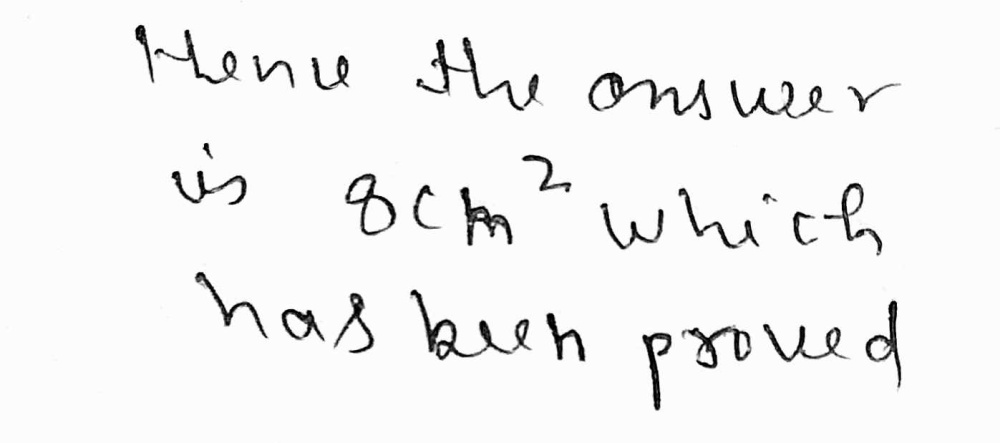 Hence the answer
is 8cm² which
has been proved